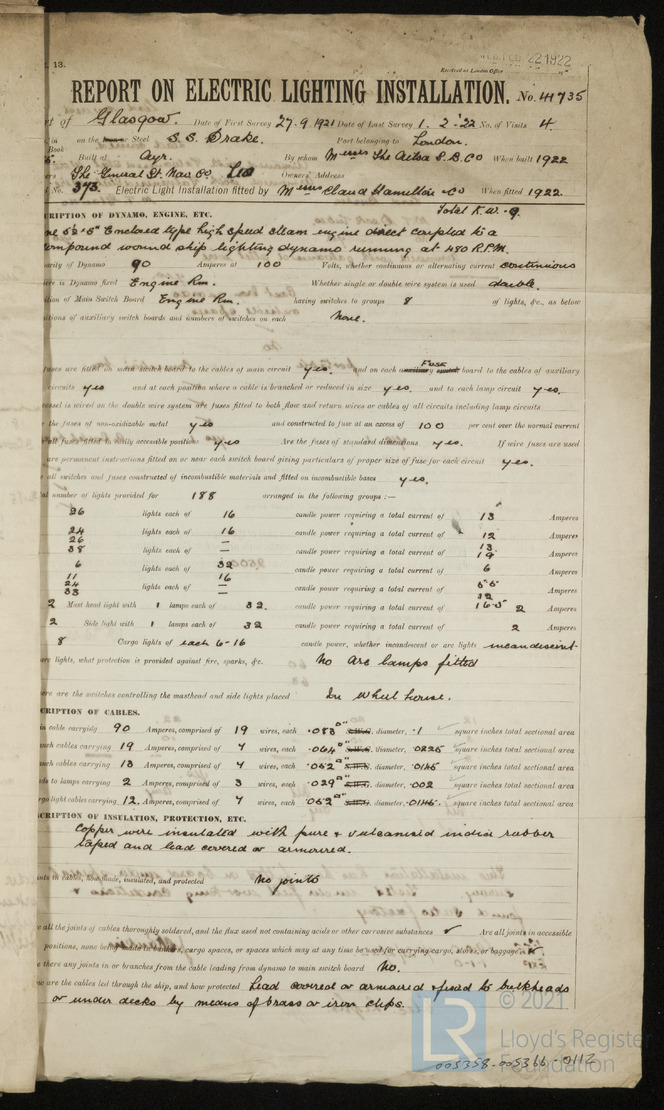 t. 13.
22 1922
Received at London Office
REPORT ON ELECTRIC LIGHTING INSTALLATION. No. 41735
rt of Glasgow. Date of First Survey 27.9.1921 Date of Last Survey 1.2.'22 No. of Visits 4.
in on the Steel S.S. Drake. Port belonging to London.
Book Built at Ayr. By whom Messrs The Ailsa S.B. Co When built 1922
ers The General St. Nav Co Ltd Owners' Address
No. 373. Electric Light Installation fitted by Messrs Claud Hamilton & Co When fitted 1922.
Total K.W. 9.
CRIPTION OF DYNAMO, ENGINE, ETC.
ne 5½ × 5" Enclosed type high speed steam engine direct coupled to a
ompound wound ship lighting dynamo running at 480 R.P.M.
acity of Dynamo 90 Amperes at 100 Volts, whether continuous or alternating current continuous
ere is Dynamo fixed Engine Rm. Whether single or double wire system is used double.
ition of Main Switch Board Engine Rm. having switches to groups 8 of lights, &c., as below
itions of auxiliary switch boards and numbers of switches on each None.
fuses are fitted on main switch board to the cables of main circuit yes. and on each auxiliary switch fuse board to the cables of auxiliary
circuits yes and at each position where a cable is branched or reduced in size yes. and to each lamp circuit yes.
vessel is wired on the double wire system are fuses fitted to both flow and return wires or cables of all circuits including lamp circuits
the fuses of non-oxidizable metal yes and constructed to fuse at an excess of 100 per cent over the normal current
all fuses fitted in easily accessible positions yes Are the fuses of standard dimensions yes. If wire fuses are used
are permanent instructions fitted on or near each switch board giving particulars of proper size of fuse for each circuit yes.
all switches and fuses constructed of incombustible materials and fitted on incombustible bases yes.
al number of lights provided for 188 arranged in the following groups :—
26 lights each of 16 candle power requiring a total current of 13 Amperes
24 lights each of 16 candle power requiring a total current of 12 Amperes
26 — 13
38 lights each of — candle power requiring a total current of 19 Amperes
6 lights each of 32 candle power requiring a total current of 6 Amperes
11 16 5.5
24 lights each of — candle power requiring a total current of 12 Amperes
33 — 16.5
2 Mast head light with 1 lamps each of 32. candle power requiring a total current of 2 Amperes
2 Side light with 1 lamps each of 32 candle power requiring a total current of 2 Amperes
8 Cargo lights of each 6-16 candle power, whether incandescent or arc lights incandescent
are lights, what protection is provided against fire, sparks, &c. No arc lamps fitted
ere are the switches controlling the masthead and side lights placed In wheel house.
CRIPTION OF CABLES.
in cable carrying 90 Amperes, comprised of 19 wires, each .083" S.W.G. diameter, .1 square inches total sectional area
nch cables carrying 19 Amperes, comprised of 7 wires, each .064" S.W.G. diameter, .0225 square inches total sectional area
nch cables carrying 13 Amperes, comprised of 7 wires, each .052" S.W.G. diameter, .0145 square inches total sectional area
ds to lamps carrying 2 Amperes, comprised of 3 wires, each .029" S.W.G. diameter, .002 square inches total sectional area
rgo light cables carrying 12. Amperes, comprised of 7 wires, each .052" S.W.G. diameter, .0145. square inches total sectional area
CRIPTION OF INSULATION, PROTECTION, ETC.
Copper wire insulated with pure & vulcanised india rubber
taped and lead covered or armoured.
ints in cables, how made, insulated, and protected No joints
e all the joints of cables thoroughly soldered, and the flux used not containing acids or other corrosive substances ✓ Are all joints in accessible
positions, none being made in bunkers, cargo spaces, or spaces which may at any time be used for carrying cargo, stores, or baggage ✓
e there any joints in or branches from the cable leading from dynamo to main switch board No.
w are the cables led through the ship, and how protected Lead covered or armoured & fixed to bulkheads
or under decks by means of brass or iron clips.
LR © 2021
Lloyd's Register
Foundation
005358-005366-0112